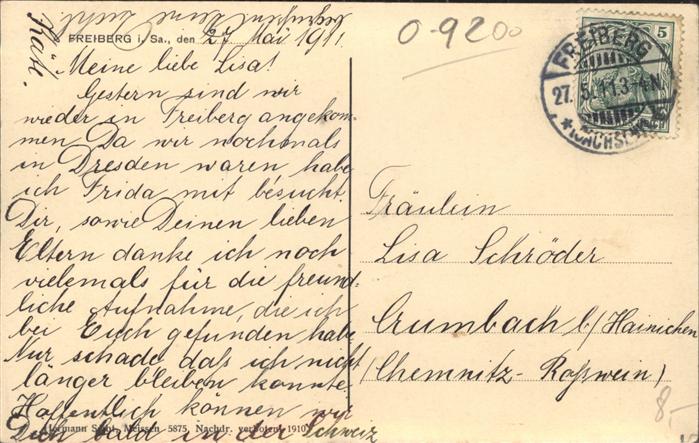 FREIBERG i. Sa., den 27 Mai 1911.
Meine liebe Lisa!
Gestern sind wir
wieder in Freiberg angekom-
men Da wir nochmals
in Dresden waren habe
ich Frida mit besucht.
Dir, sowie Deinen lieben
Eltern danke ich noch
vielemals für die freund-
liche Aufnahme, die ich
bei Euch gefunden habe
Nur schade daß ich nicht
länger bleiben konnte
Hoffentlich können wir
Dich bald in der Schweiz
Hermann Meissen 5875. Nachdr. verboten. 1910.
Käte.
0-9200
5
FREIBERG
27.5.11.3-4N.
*(SACHSEN)
Fräulein
Lisa Schröder
Crumbach b/Hainichen
(Chemnitz-Roßwein)
8-